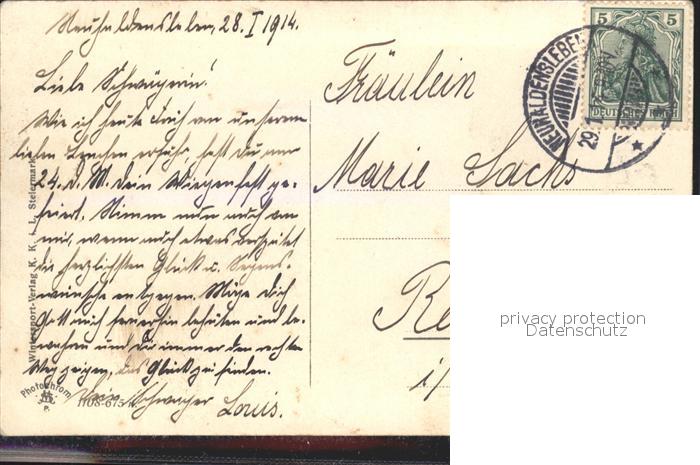 Neuhaldensleben, 28. I 1914.
Liebe Schwägerin!
Wie ich heute früh von unserem
lieben erfuhr, hast du am
24. d. M. dein Wiegenfest ge-
feiert. Nimm nun auch von
mir, wenn auch etwas verspätet
die herzlichsten Glück u. Segens-
wünsche entgegen. Möge dich
Gott auch fernerhin behüten und be-
wahren und dir immer den rechten
Weg zeigen, das Glück zu finden.
Dein Schwager Louis.
Fräulein
Marie Sachs
Re
i/
NEUHALDENSLEBEN
29.1.
5 5
DEUTSCHES REICH
Wintersport-Verlag K. K. i. L., Steiermark
Photochrom
1108-675
privacy protection
Datenschutz